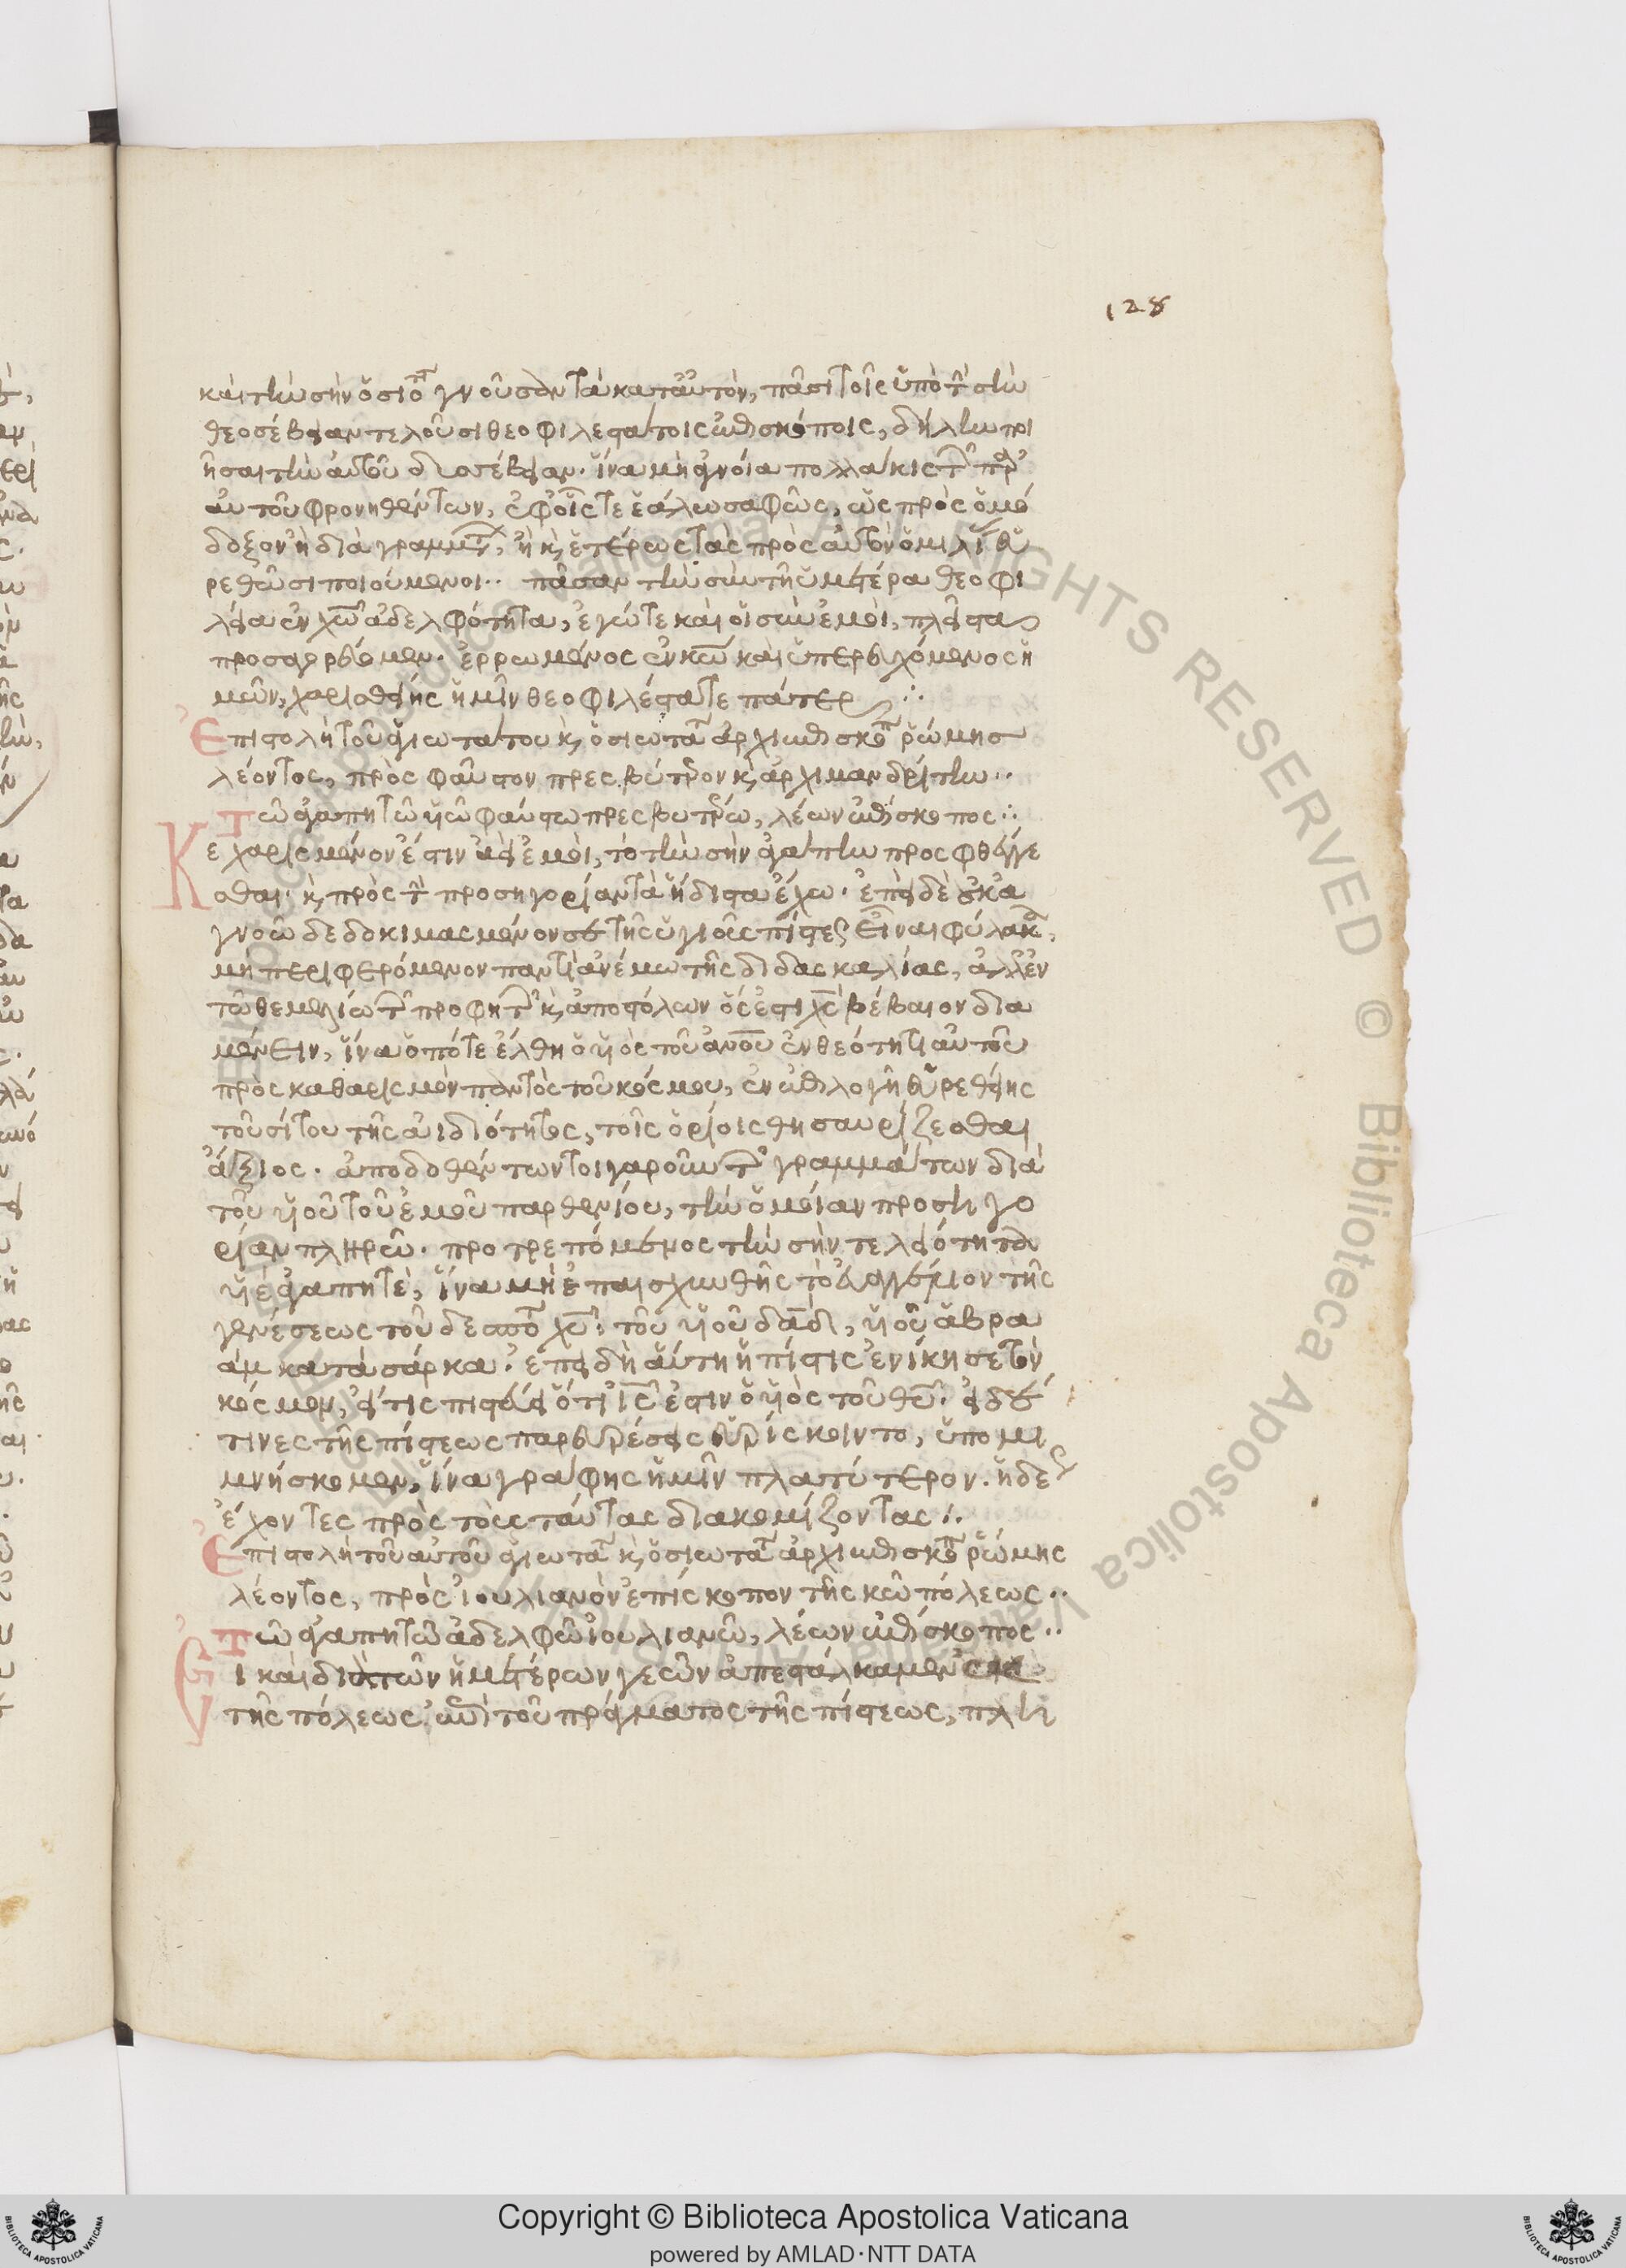 128
καὶ τὴν σὴν ὁσιότητα γνοῦσαν τὰ κατ' αὐτὸν, πᾶσι τοῖς ὑπὸ τὴν σὴν
θεοσέβειαν τελοῦσι θεοφιλεστάτοις ἐπισκόποις, δήλην ποι
ῆσαι τὴν αὐτοῦ δυσσέβειαν. ἵνα μὴ ἀγνοίᾳ πολλάκις τῶν παρ'
αὐτοῦ φρονηθέντων, ἐφ' οἷς τε ἑάλω σαφῶς, ὡς πρὸς ὁμό
δοξον ἢ διὰ γραμμάτων, ἢ καὶ ἑτέρως τὰς πρὸς αὐτὸν ὁμιλίας εὑ
ρεθῶσι ποιούμενοι·· πᾶσαν τὴν σὺν τῇ ὑμετέρα θεοφι
λεία ἐν χω ἀδελφότητα, ἐγώ τε καὶ οἱ σὺν ἐμοὶ, πλεῖστα
προσαγορεύομεν. ἐρρωμένος ἐν κω καὶ ὑπερευχόμενος ἡ
μῶν, χαρισθείης ἡμῖν θεοφιλέστατε πάτερ ∴
Ἐπιστολὴ τοῦ ἁγιωτάτου καὶ ὁσιωτάτου ἀρχιεπισκόπου ῥώμησ
λέοντος, πρὸς φαῦστον πρεσβύτερον καὶ ἀρχιμανδρίτην··
Τῶ ἀγαπητῶ υἱῶ φαύστω πρεσβυτέρω, λέων ἐπίσκοπος ∴
Κεχαρισμένον ἐστὶν ἀεὶ ἐμοὶ, τὸ τὴν σὴν ἀγάπην προσφθέγγε
σθαι· καὶ πρὸς τὴν προσηγορίαν τὰ ἥδιστα ἔχω. ἐπεὶ δὲ σὲ κα
γνοῶ δεδοκιμασμένον σε τῆς ὑγιοῦς πίστεως εἶναι φύλακα,
μὴ περιφερόμενον παντὶ ἀνέμω τῆς διδασκαλίας, ἀλλ' ἐν
τῶ θεμελίω τῶν προφητῶν καὶ ἀποστόλων ὅς ἐστι χς βέβαιον δια
μένειν, ἵνα ὁπότε ἔλθη ὁ υἱὸς τοῦ ανου ἐν θεότητι αὐτοῦ
πρὸς καθαρισμὸν παντὸς τοῦ κόσμου, ἐν ἐπιλογῆ εὑρεθείης
τοῦ σίτου τῆς ἀϊδιότητος, τοῖς ὁρίοις θησαυρίζεσθαι
ἄξιος. ἀποδοθέντων τοιγαροῦν τῶν γραμμάτων διὰ
τοῦ υἱοῦ τοῦ ἐμοῦ παρθενίου, τὴν ὁμοίαν προση γο
ρίαν πληρῶ. προτρεπόμενος τὴν σὴν τελειότητα
υἱὲ ἀγαπητὲ, ἵνα μὴ ἐπαισχυνθῆς τὸ εὐαγγέλιον τῆς
γεννέσεως τοῦ δεσπότου χυ. τοῦ υἱοῦ δαδ, υἱοῦ ἀβρα
ὰμ κατὰ σάρκα. ἐπειδὴ αὕτη ἡ πίστις ἐνίκησε τὸν
κόσμον, εἴ τις πιστεύει ὅτι ις ἐστιν ὁ υἱὸς τοῦ θυ. εἰ δέ
τινες τῆς πίστεως παρευρέσεις εὑρίσκοιντο, ὑπομι
μνήσκομεν, ἵνα γράφης ἡμῖν πλατύτερον. ἡδέως
ἔχοντες πρὸς τοὺς ταύτας διακομίζοντας ∴
Ἐπιστολὴ τοῦ αὐτοῦ ἁγιωτάτου καὶ ὁσιωτάτου ἀρχιεπισκόπου ῥώμης
λέοντος, πρὸς ἰουλιανὸν ἐπίσκοπον τῆς κῶ πόλεως··
Τῶ ἀγαπητῶ ἀδελφῶ ἰουλιανῶ, λέων ἐπίσκοπος··
Εἰ καὶ διὰ τῶν ἡμετέρων γε ὧν ἀπεστάλκαμεν
τῆς πόλεως ὑπὲρ τοῦ πράγματος τῆς πίστεως, πλη
Copyright © Biblioteca Apostolica Vaticana
powered by AMLAD·NTT DATA